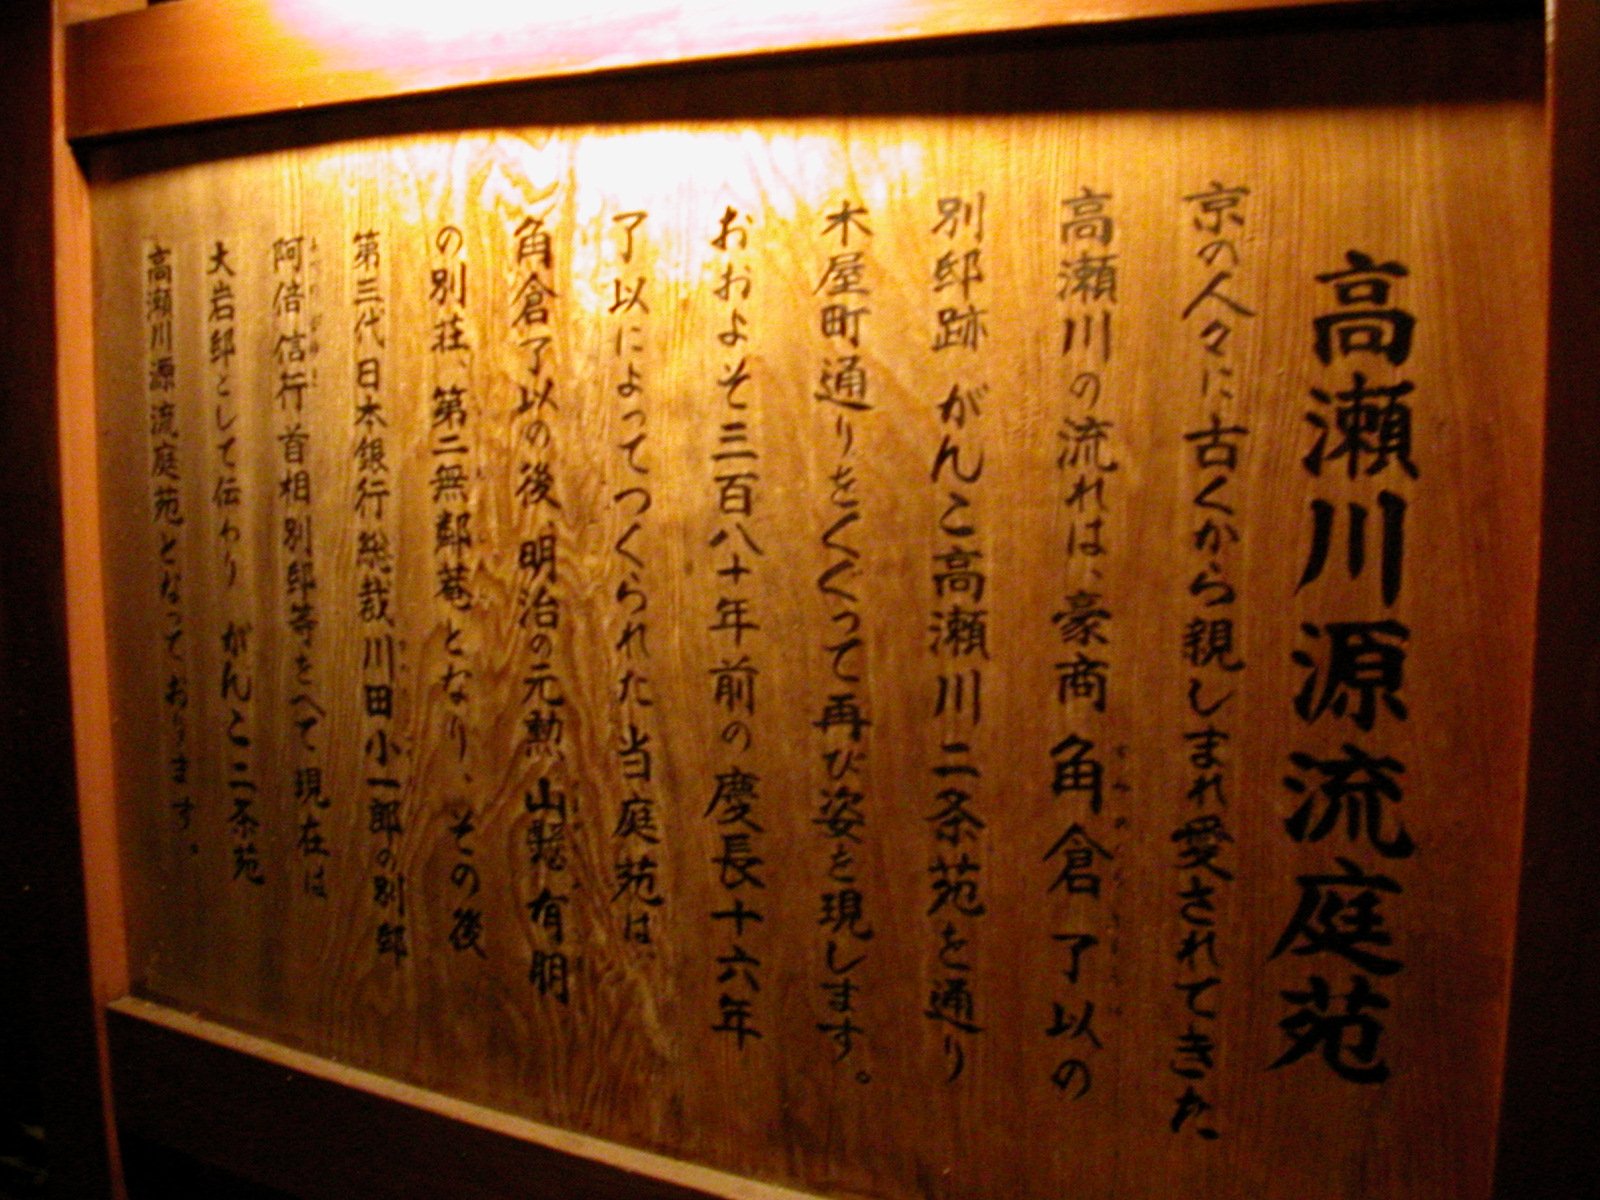 高瀬川源流庭苑
京の人々に古くから親しまれ愛されてきた
高瀬川の流れは、豪商角倉了以の
別邸跡 がんこ高瀬川二条苑を通り
木屋町通りをくぐって再び姿を現します。
おおよそ三百八十年前の慶長十六年
了以によってつくられた当庭苑は、
角倉了以の後、明治の元勲 山縣有朋
の別荘、第二無鄰菴となり、その後
第三代日本銀行総裁、川田小一郎の別邸
阿倍信行首相別邸等をへて現在は
大岩邸として伝わり がんこ二条苑
高瀬川源流庭苑となっております。